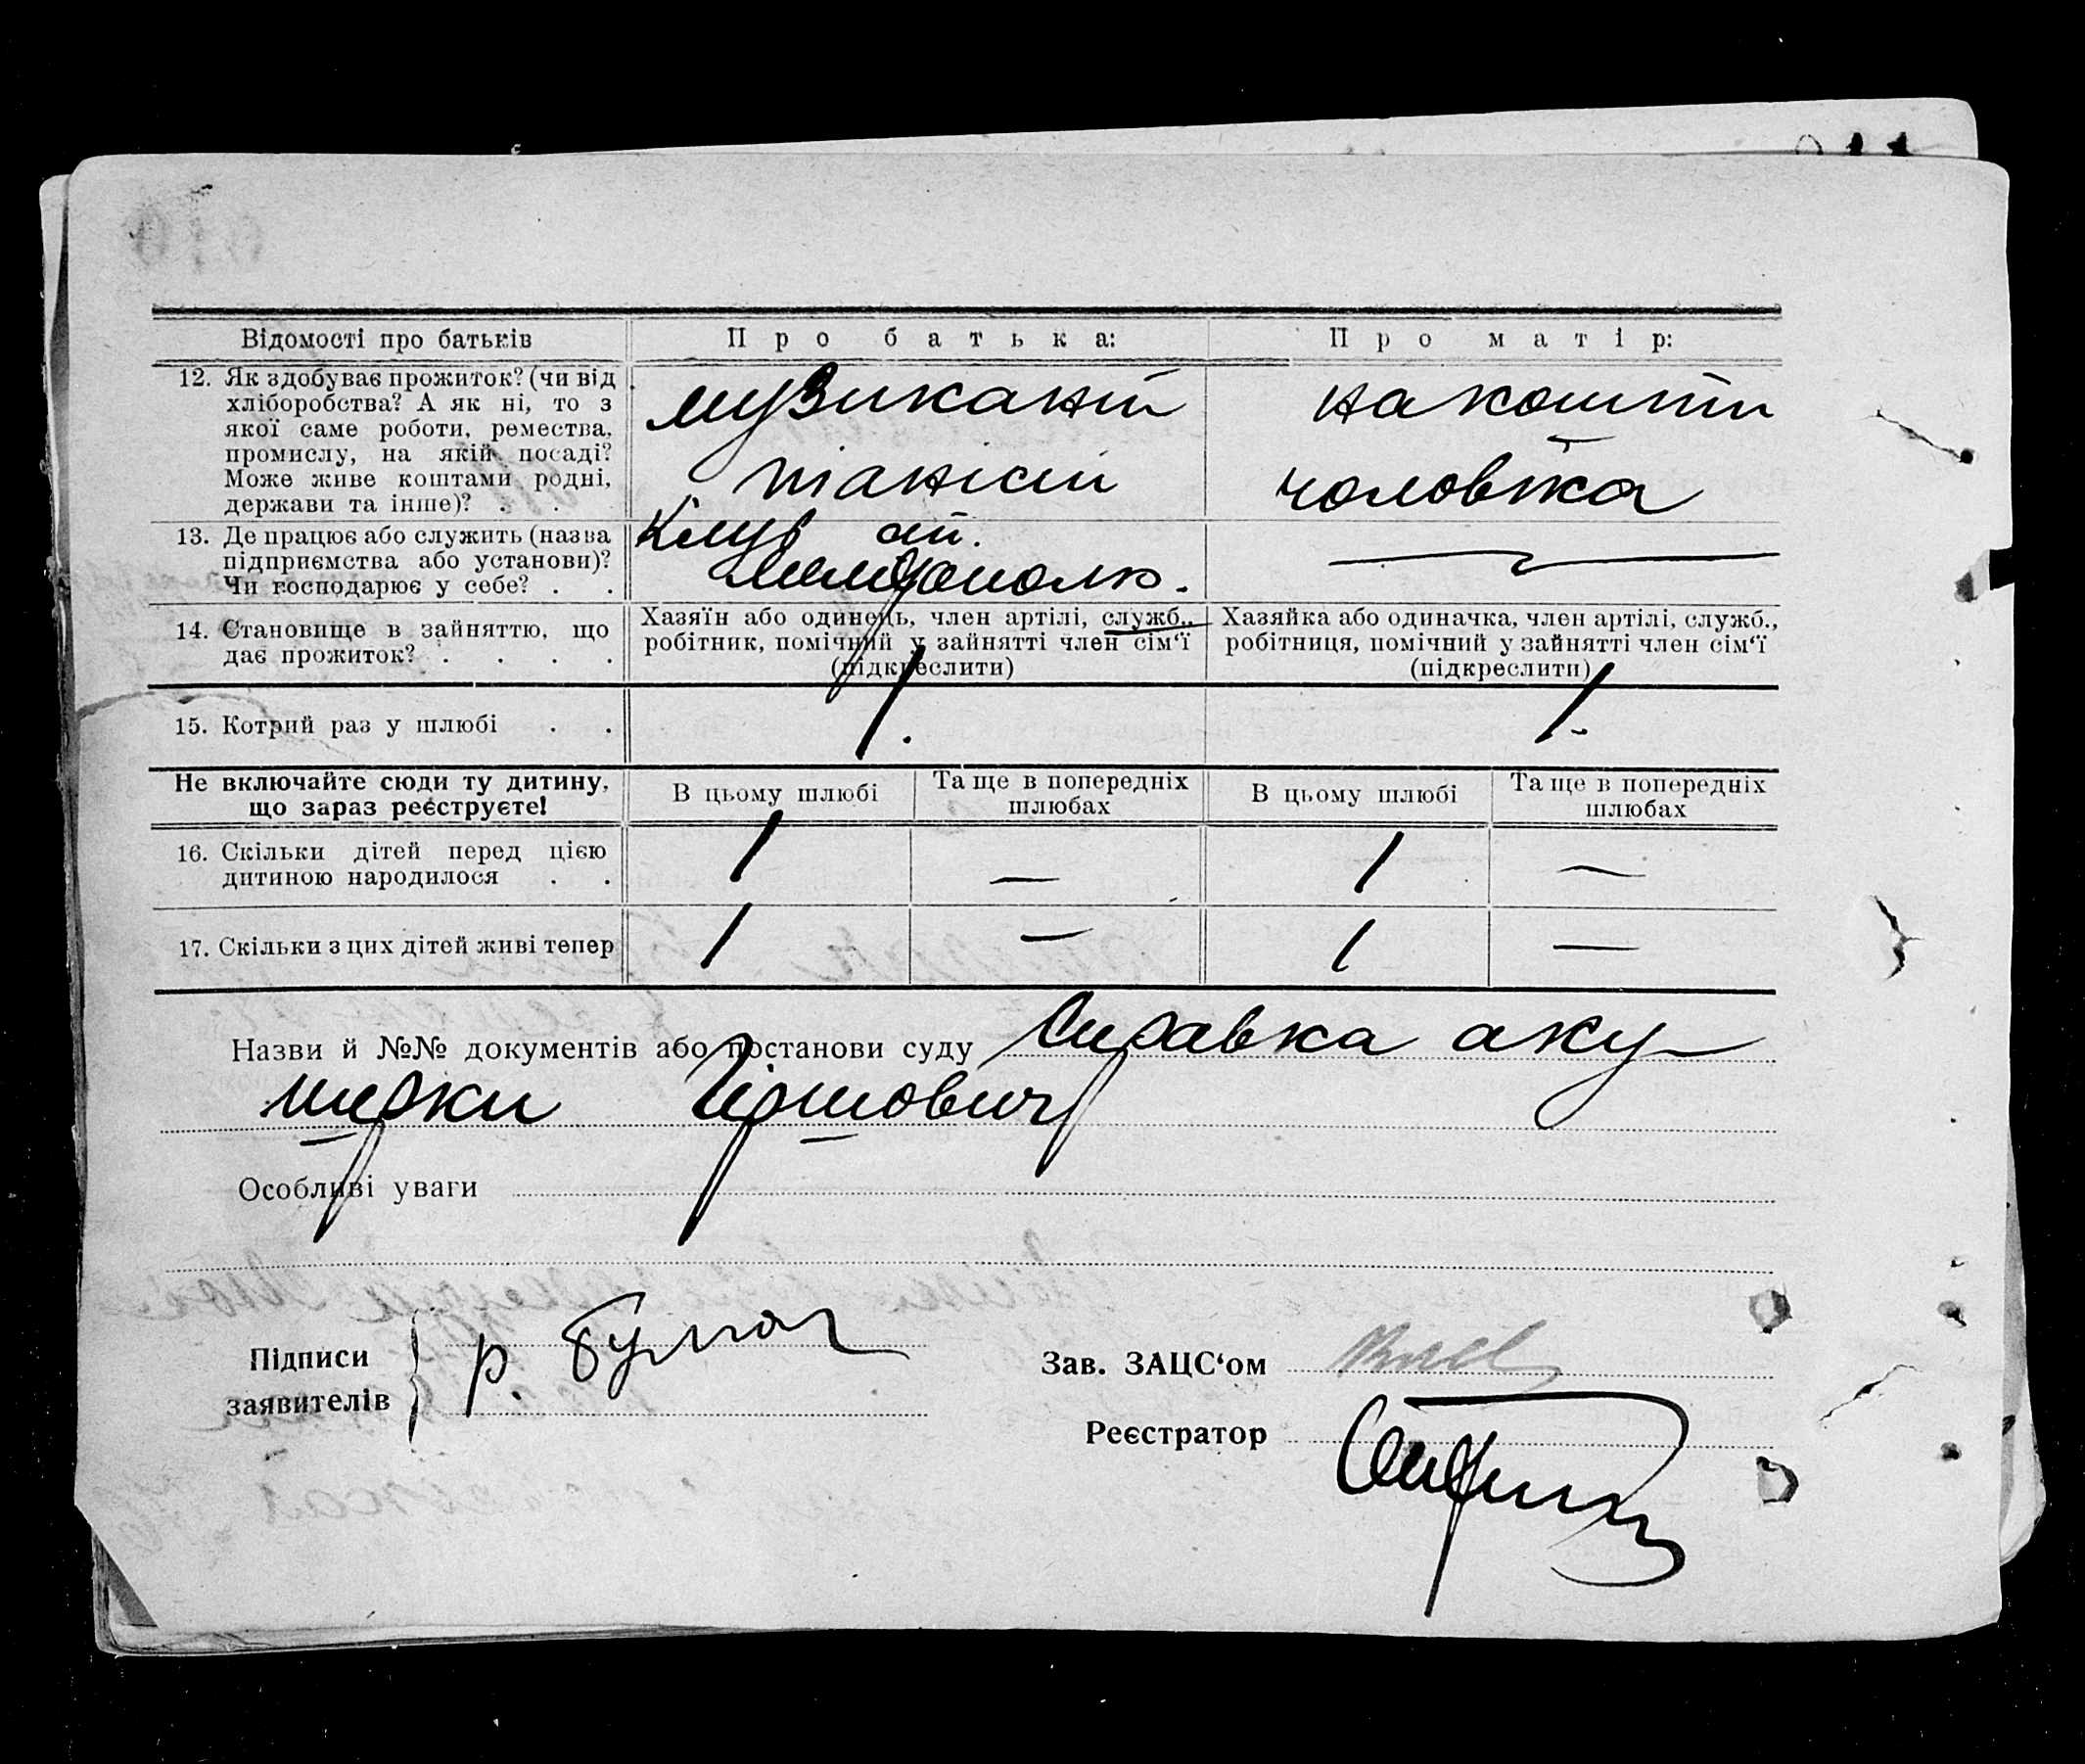 Відомості про батьків
Про батька:
Про матір:
12. Як здобуває прожиток? (чи від
хліборобства? А як ні, то з
якої саме роботи, ремества,
промислу, на якій посаді?
Може живе коштами родні,
держави та інше)? . .
музикант
піаніст
на кошти
чоловіка
13. Де працює або служить (назва
підприємства або установи)?
Чи господарює у себе? . .
Клуб ст.
14. Становище в зайняттю, що
дає прожиток? . . . .
Хазяїн або одинець, член артілі, служб.,
робітник, помічний у зайнятті член сім‘ї
(підкреслити)
Хазяйка або одиначка, член артілі, служб.,
робітниця, помічний у зайнятті член сім‘ї
(підкреслити)
15. Котрий раз у шлюбі . .
1.
1.
Не включайте сюди ту дитину,
що зараз реєструєте!
В цьому шлюбі
Та ще в попередніх
шлюбах
В цьому шлюбі
Та ще в попередніх
шлюбах
16. Скільки дітей перед цією
дитиною народилося . .
1 — 1 —
17. Скільки з цих дітей живі тепер
1 — 1 —
Назви й №№ документів або постанови суду Справка аку
шерки Гіршович
Особливі уваги
Підписи
заявителів
р.
Зав. ЗАЦС‘ом
Реєстратор